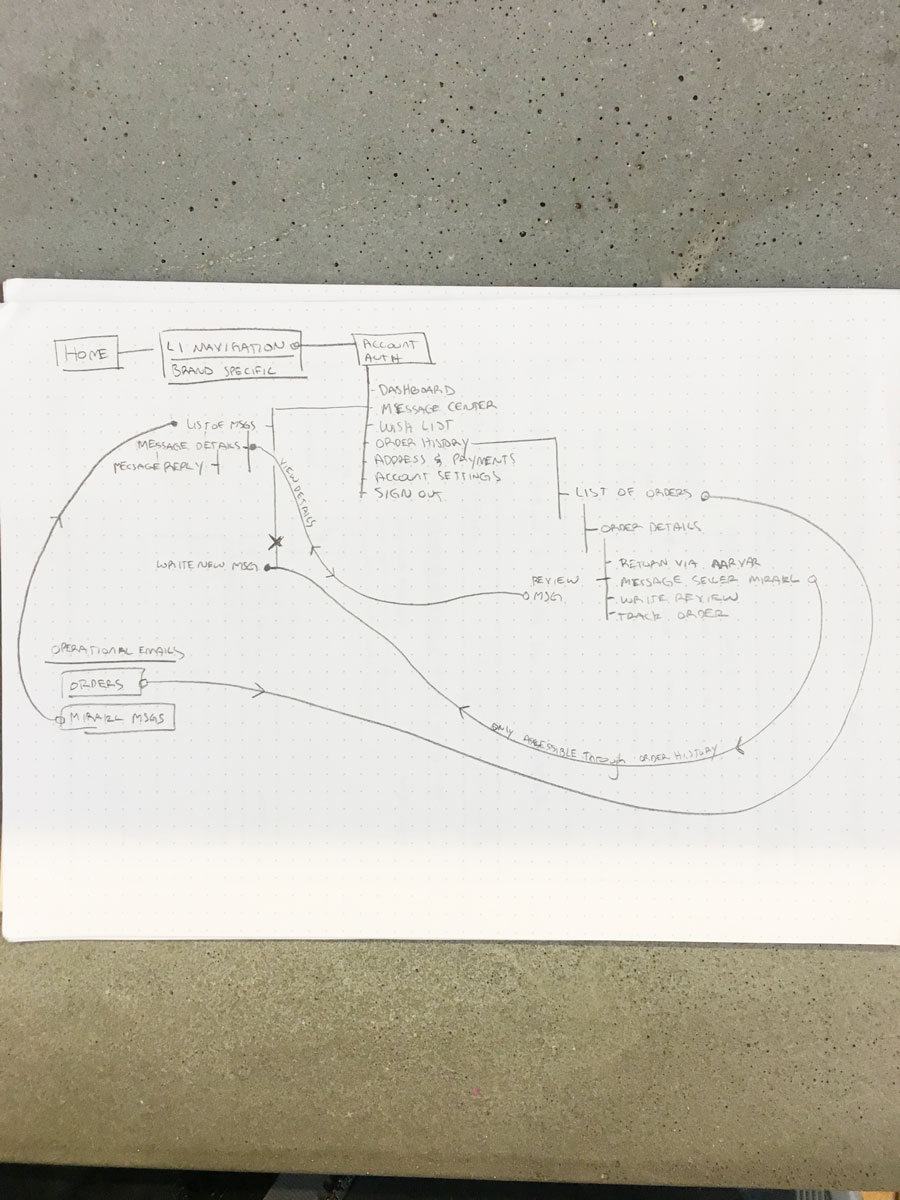 HOME
L1 NAVIGATION
BRAND SPECIFIC
ACCOUNT
AUTH
DASHBOARD
MESSAGE CENTER
WISH LIST
ORDER HISTORY
ADDRESS & PAYMENTS
ACCOUNT SETTINGS
SIGN OUT
LIST OF MSGS
MESSAGE DETAILS
MESSAGE REPLY
VIEW DETAILS
WRITE NEW MSG
LIST OF ORDERS
ORDER DETAILS
RETURN VIA AARVAR
MESSAGE SELLER MIRAKL
WRITE REVIEW
TRACK ORDER
REVIEW
MSG
OPERATIONAL EMAILS
ORDERS
MIRAKL MSGS
ONLY ACCESSIBLE Through ORDER HISTORY